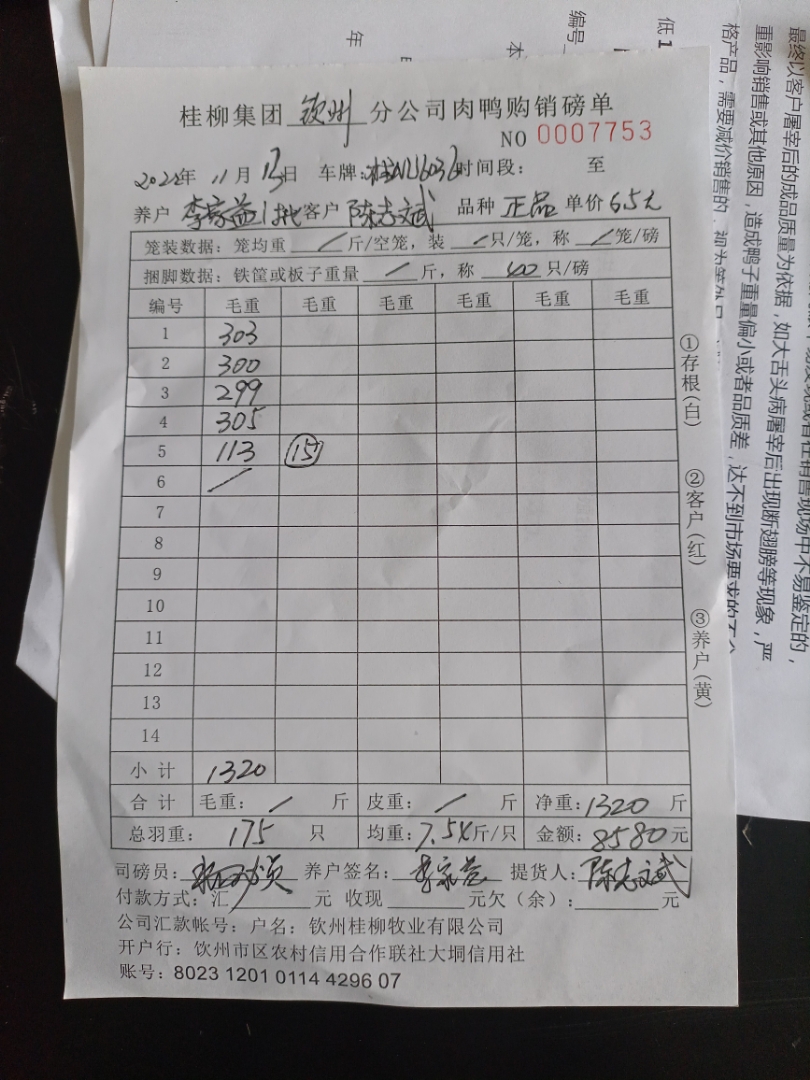 桂柳集团 钦州 分公司肉鸭购销磅单
NO 0007753
2022年 11月 13日 车牌: 桂N16036 时间段: 至
养户 李家益1批 客户 陈志斌 品种 正品 单价 6.5元
笼装数据: 笼均重 / 斤/空笼, 装 / 只/笼, 称 / 笼/磅
捆脚数据: 铁筐或板子重量 / 斤, 称 40 只/磅
编号 毛重 毛重 毛重 毛重 毛重 毛重
1 303
2 300
3 299
4 305
5 113 15
6 /
7
8
9
10
11
12
13
14
小计 1320
合计 毛重: / 斤 皮重: / 斤 净重: 1320 斤
总羽重: 175 只 均重: 7.54斤/只 金额: 8580元
司磅员: 养户签名: 李家益 提货人: 陈志斌
付款方式: 汇 元 收现 元欠(余): 元
公司汇款帐号: 户名: 钦州桂柳牧业有限公司
开户行: 钦州市区农村信用合作联社大垌信用社
账号: 8023 1201 0114 4296 07
①存根(白)
②客户(红)
③养户(黄)
年
本
编号
低1
最终以客户屠宰后的成品质量为依据，如大舌头病屠宰后出现断翅膀等现象，严
重影响销售或其他原因，造成鸭子重量偏小或者品质差，达不到市场要求的
格产品，需要减价销售的